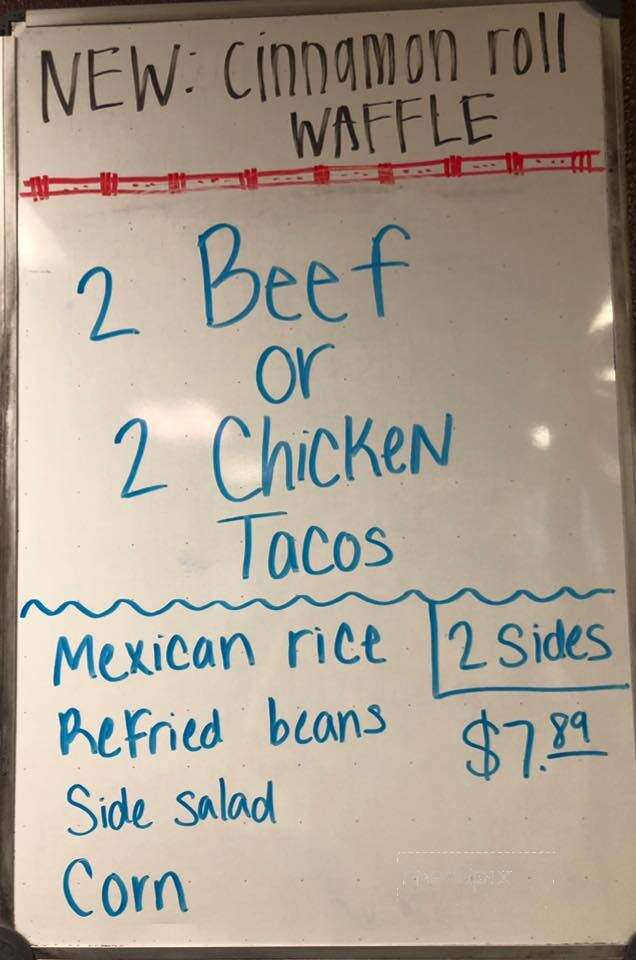 NEW: Cinnamon roll
WAFFLE
2 Beef
or
2 Chicken
Tacos
Mexican rice
Refried beans
Side salad
Corn
2 Sides
$7.89